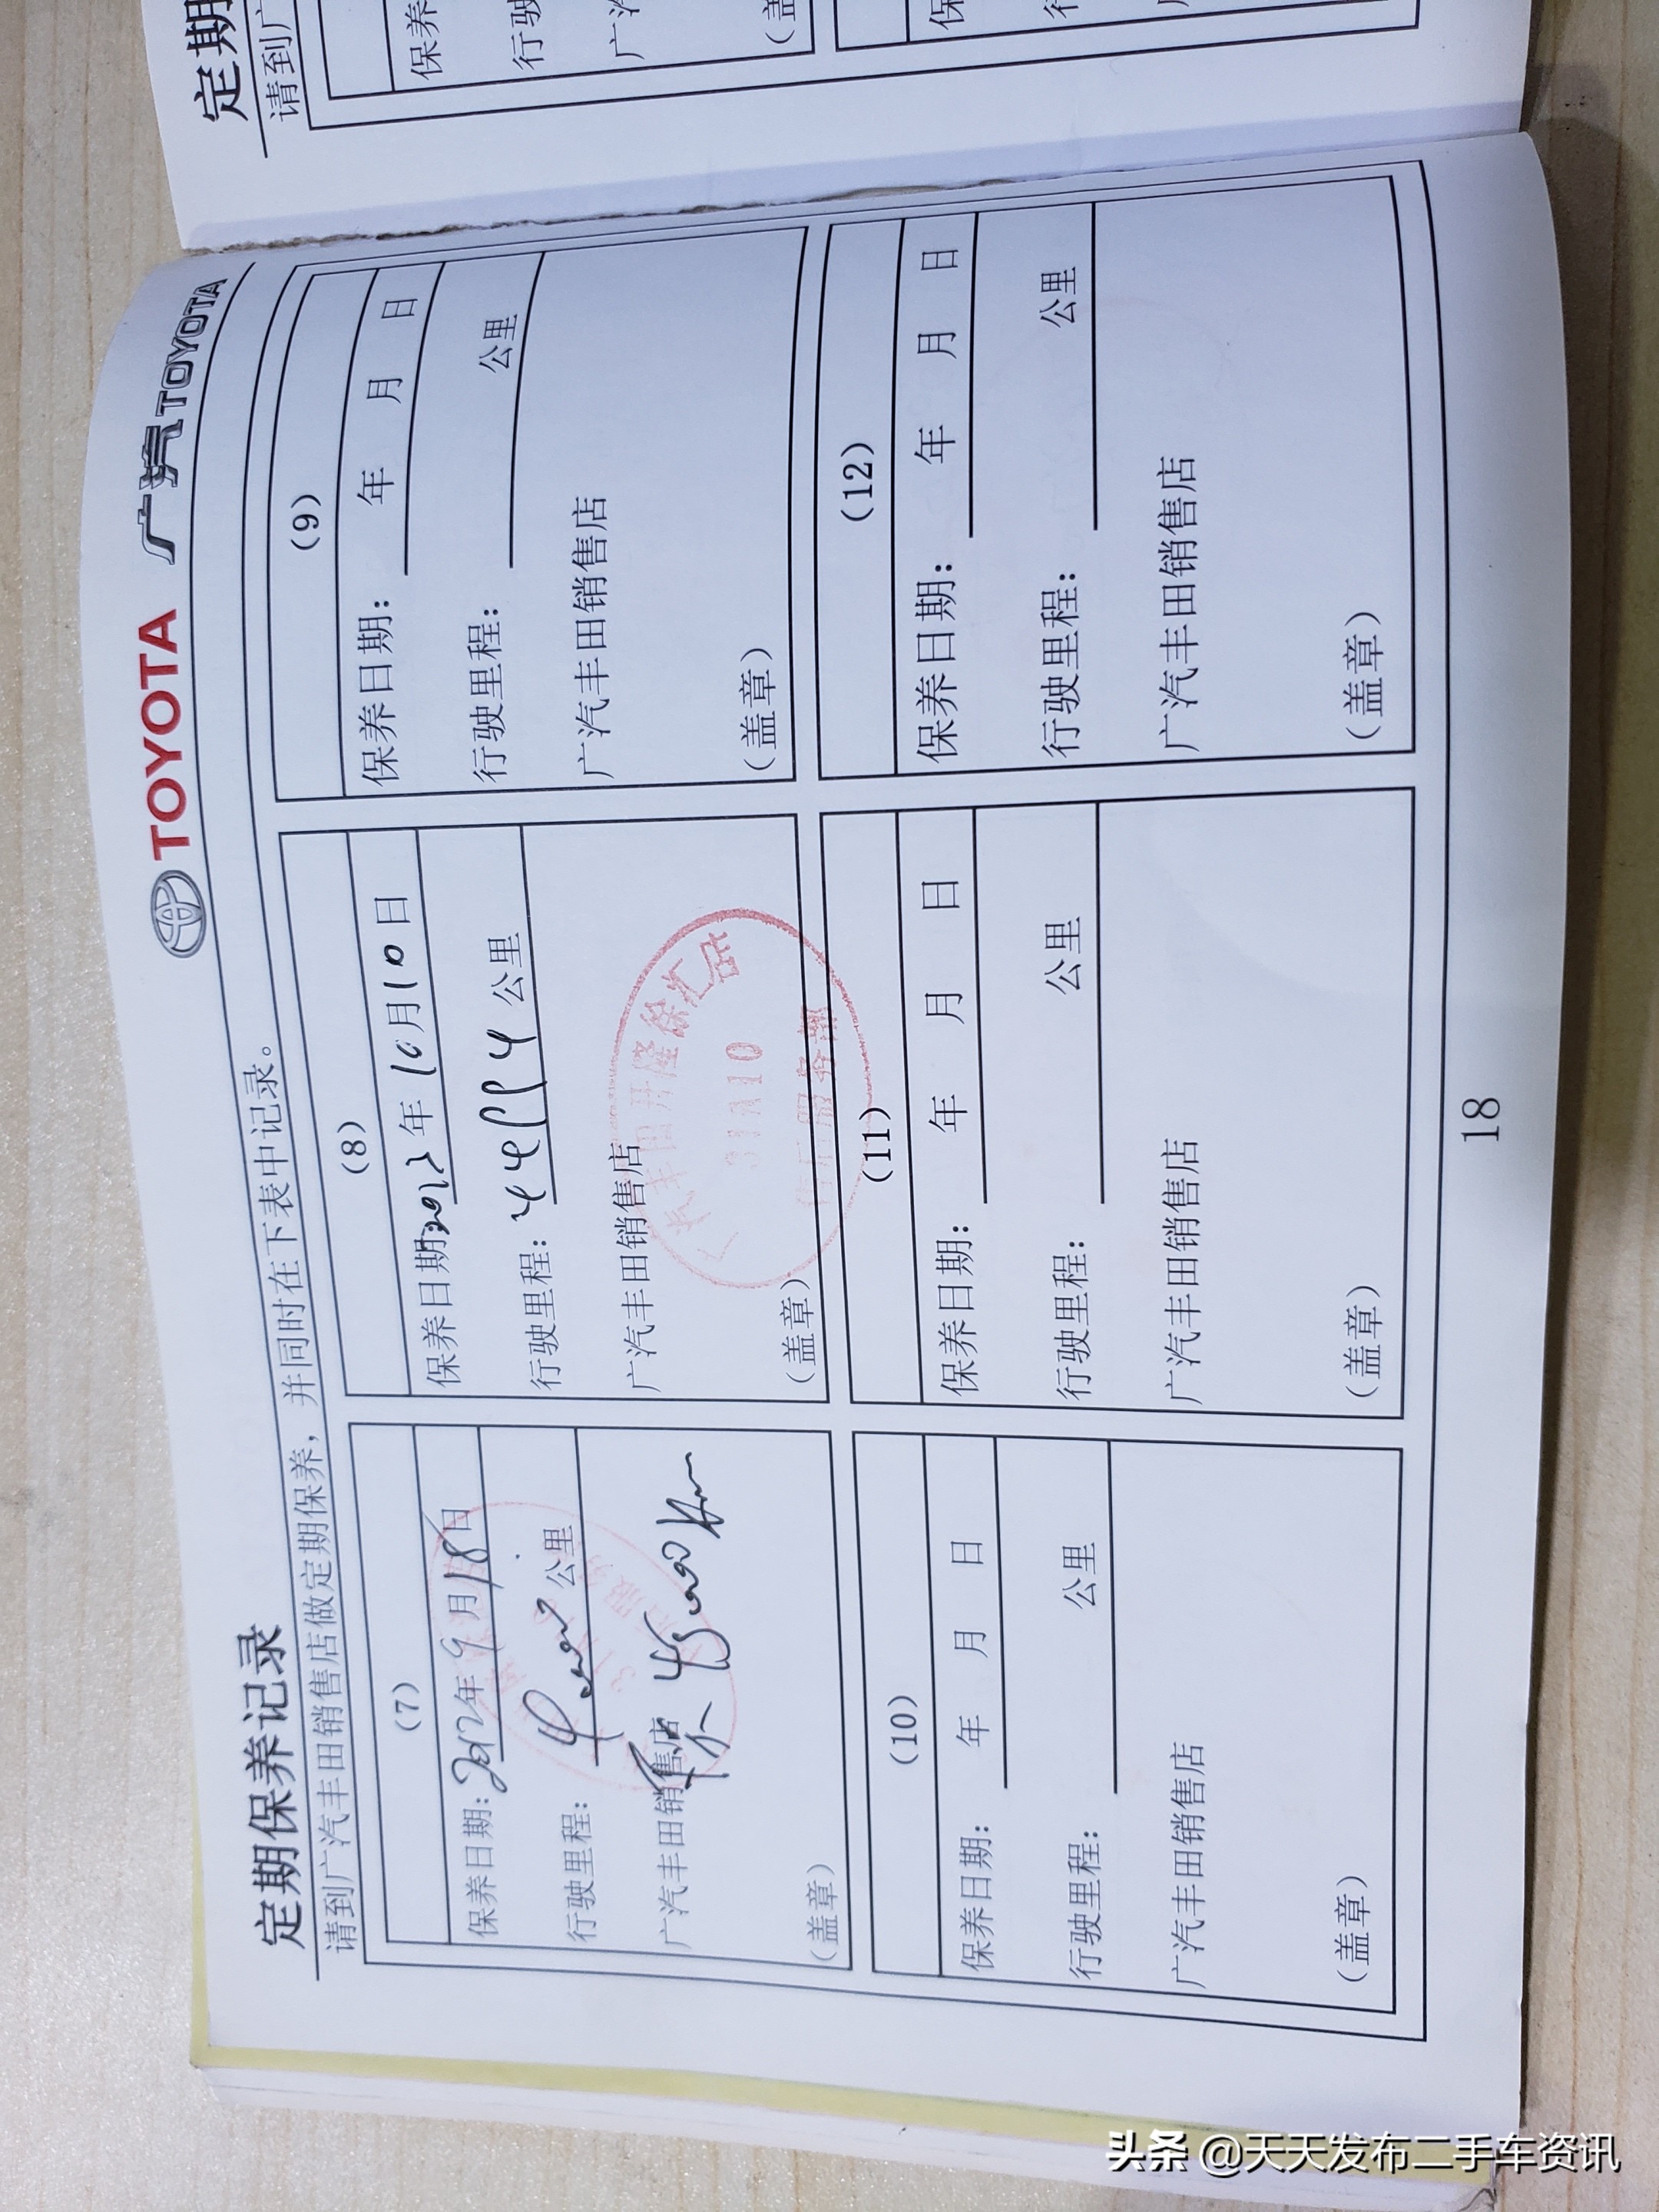 定期保养记录
TOYOTA 广汽TOYOTA
请到广汽丰田销售店做定期保养，并同时在下表中记录。
(7)
保养日期：2012年9月18日
行驶里程： 公里
广汽丰田销售店
(盖章)
(8)
保养日期：2012年10月10日
行驶里程： 公里
广汽丰田销售店
广汽丰田开隆徐汇店
31A10
售后服务部
(盖章)
(9)
保养日期： 年 月 日
行驶里程： 公里
广汽丰田销售店
(盖章)
(10)
保养日期： 年 月 日
行驶里程： 公里
广汽丰田销售店
(盖章)
(11)
保养日期： 年 月 日
行驶里程： 公里
广汽丰田销售店
(盖章)
(12)
保养日期： 年 月 日
行驶里程： 公里
广汽丰田销售店
(盖章)
18
定期
请到广
保养
行驶
广汽
(盖
头条 @天天发布二手车资讯